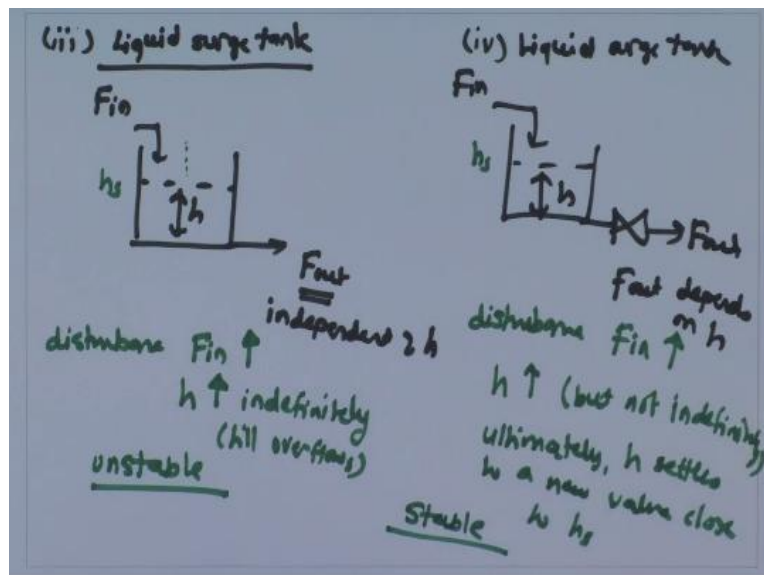 (iii) Liquid surge tank
Fin
hs
h
Fout
independent of h
disturbance Fin ↑
h ↑ indefinitely
(till overflows)
unstable
(iv) Liquid urge tank
Fin
hs
h
Fout
Fout depends
on h
disturbance Fin ↑
h ↑ (but not indefinitely)
ultimately, h settles
to a new value close
to hs
Stable